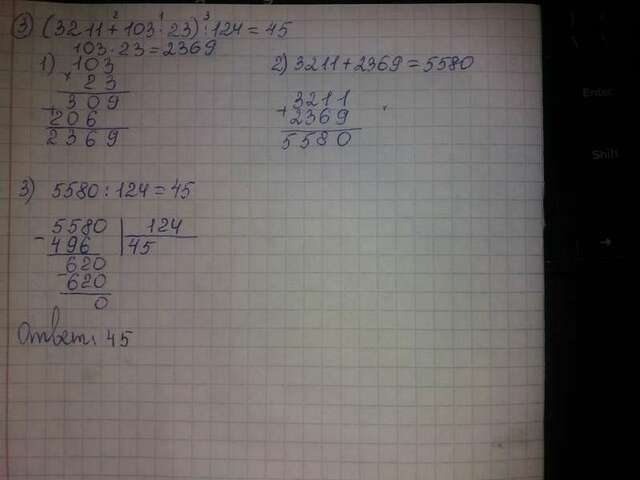 ③ (3211+103·23):124=45
2 1 3
103·23=2369
1) 103
× 23
309
+
206
2369
2) 3211+2369=5580
3211
+
2369
5580
3) 5580:124=45
5580 | 124
- 496 | 45
620
- 620
0
Ответ: 45
Enter
Shift
→